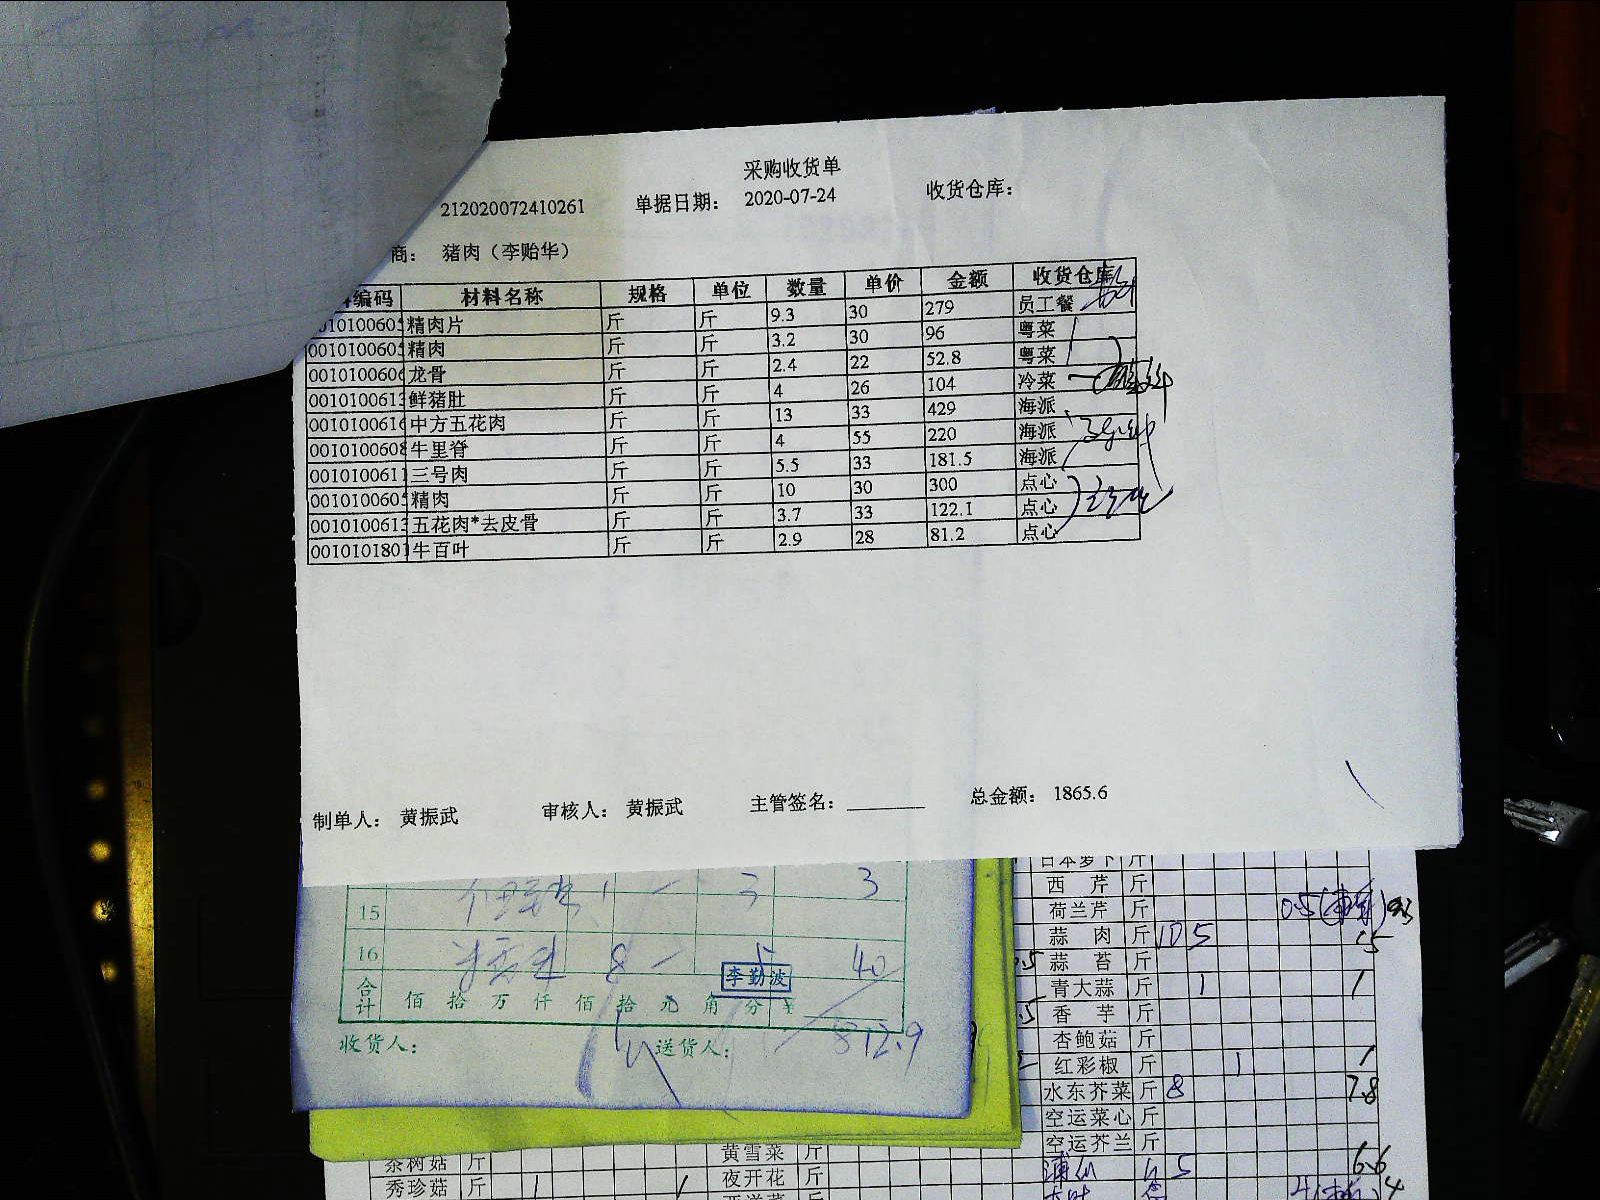 采购收货单
212020072410261 单据日期: 2020-07-24 收货仓库:
商: 猪肉（李贻华）
编码 材料名称 规格 单位 数量 单价 金额 收货仓库
精肉片 斤 斤 9.3 30 279 员工餐
精肉 斤 斤 3.2 30 96 粤菜
龙骨 斤 斤 2.4 22 52.8 粤菜
鲜猪肚 斤 斤 4 26 104 冷菜
中方五花肉 斤 斤 13 33 429 海派
牛里脊 斤 斤 4 55 220 海派
三号肉 斤 斤 5.5 33 181.5 海派
精肉 斤 斤 10 30 300 点心
五花肉*去皮骨 斤 斤 3.7 33 122.1 点心
牛百叶 斤 斤 2.9 28 81.2 点心
制单人: 黄振武 审核人: 黄振武 主管签名: 总金额: 1865.6
3
15
16 8 5 40
李勤波
合计 佰 拾 万 仟 佰 拾 元 角 分 ¥
收货人: 送货人:
日本萝卜 斤
西 芹 斤
荷兰芹 斤
蒜 肉 斤 15
蒜 苔 斤
青大蒜 斤 1 1
香 芋 斤
杏鲍菇 斤
红彩椒 斤 1 1
水东芥菜 斤 8 7.8
空运菜心 斤
空运芥兰 斤
5 6.6
茶树菇 斤 黄雪菜 斤
秀珍菇 斤 1 1 夜开花 斤